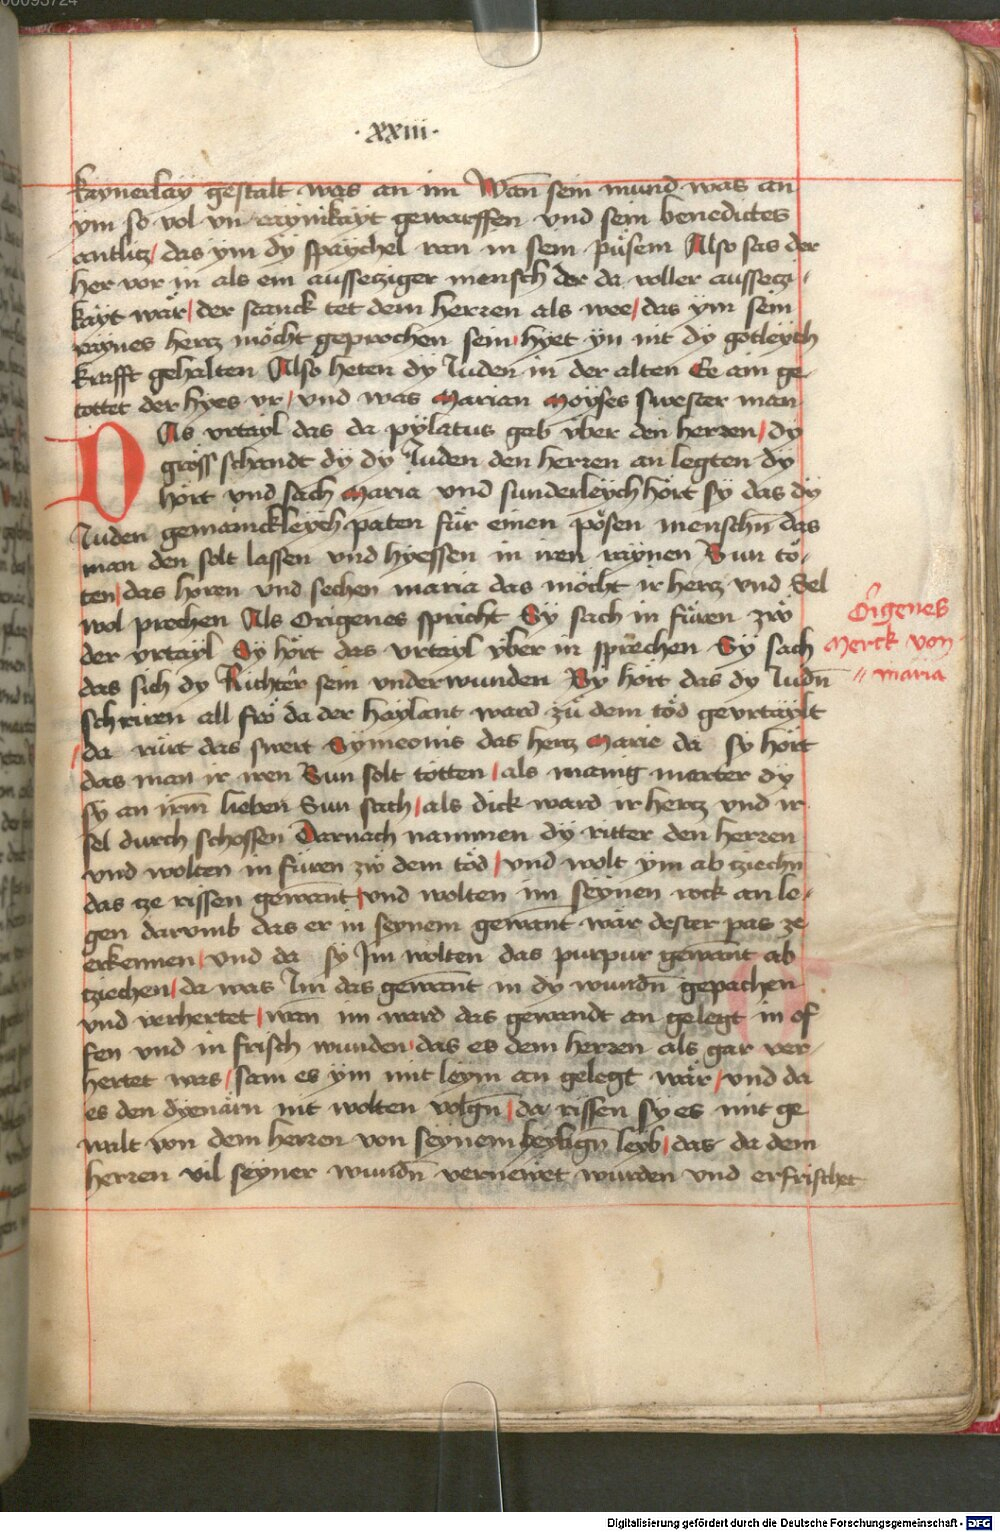 ·xxiii·
kaynerlay gestalt was an im Wan̄ sein mund was an
ym so vol vn raynikayt gewarffen vnd sein benedictes
antlitz / das ym dy spaychel ran in sein püsem Also sas der
her vor in als ein aussecziger mensch der da voller aussecz,
kayt wär / der stanck tet dem herren als wee / das ym sein
raynes hercz möcht geprochen sein / hyet yn nit dy gotleych
krafft gehalten Also heten dy Juden in der alten Ee ain ge,
tottet der hyes vr / vnd was Marian Moyses swester man
DAs vrtayl das da pylatus gab vber den herren / dy
gröss schandt dy dy Juden den herren an legten dy
hört vnd sach Maria vnd sunderleych hört sy das dy
Juden gemainckleych paten für einen pösen menschn̄ das
man den solt lassen vnd hyessen in iren raynen Sun tö,
ten / das hören vnd sechen maria das möcht ir hercz vnd Sel
wol prechen Als Origenes spricht Sy sach in füren zw
der vrtayl Sy hört das vrtayl vber in sprechen Sy sach
das sich dy Richter sein vnderwunden Sy hört das dy Judn̄
schriren all fro da der haylant ward zu dem töd gevrtaylt
/ da rürt das swert Symeonis das hercz Marie da sy hört
das man ir iren Sun solt totten / als manig marter dy
sy an irm̄ lieben Sun sach / als dick ward ir hercz vnd ir
sel durch schossen Darnach nammen dy ritter den herren
vnd wolten in füren zw dem töd / vnd wolt ym ab cziechn
das ze rissen gewant / vnd wolten im seynen rock an le,
gen darumb das er in seynem gewant wär dester pas ze
erkennen / vnd da sy Im wolten das purpur gewant ab
cziechen / da was Im das gewant in dy wundn̄ gepachen
vnd verhertet / wan̄ im ward das gewandt an gelegt in of
fen vnd in frisch wunden / das es dem herren als gar ver,
hertet was / sam es ym mit leym an gelegt wär / vnd da
es den dyenärn nit wolten volgn̄ / da rissen sy es mit ge
walt von dem herren von seynem heylign̄ leyb / das da dem
herren vil seyner wundn̄ vernewet wurden vnd erfrischet
Origenes
Merck von
maria
Digitalisierung gefördert durch die Deutsche Forschungsgemeinschaft - DFG